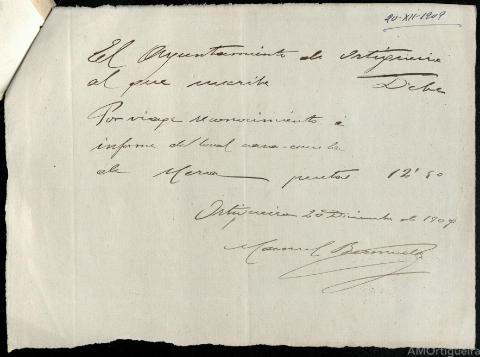 20-XII-1909
El Ayuntamiento de Ortigueira
al que suscribe Debe
Por viaje reconocimiento e
informe del local casa-escuela
de Mera pesetas 12'50
Ortigueira 20 Diciembre de 1909
Manuel Bermudez
AMOrtigueira